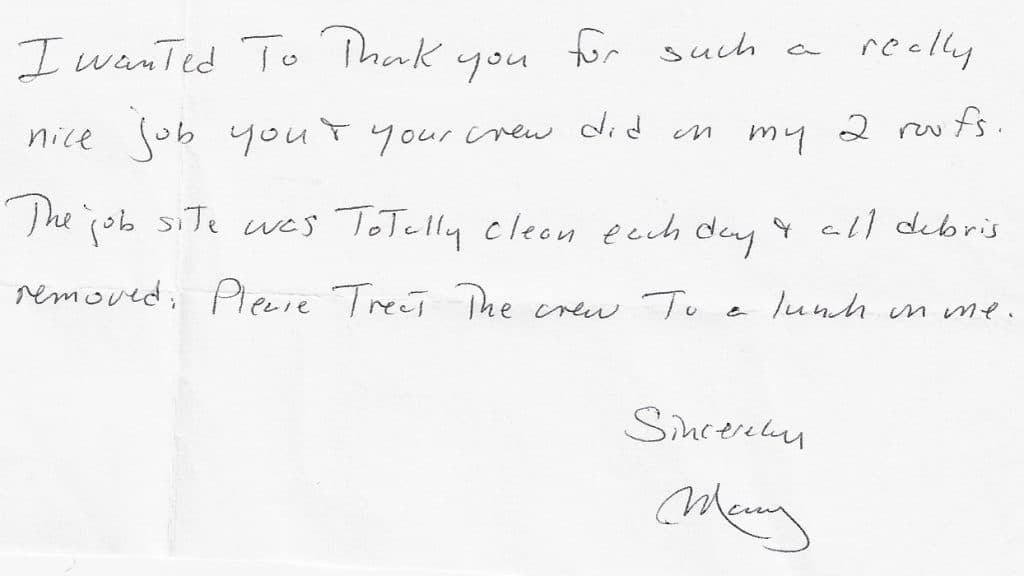 I wanted To Thank you for such a really
nice job you & your crew did on my 2 roofs.
The job site was ToTally clean each day & all debris
removed. Please Treat The crew To a lunch on me.
Sincerely
Mary